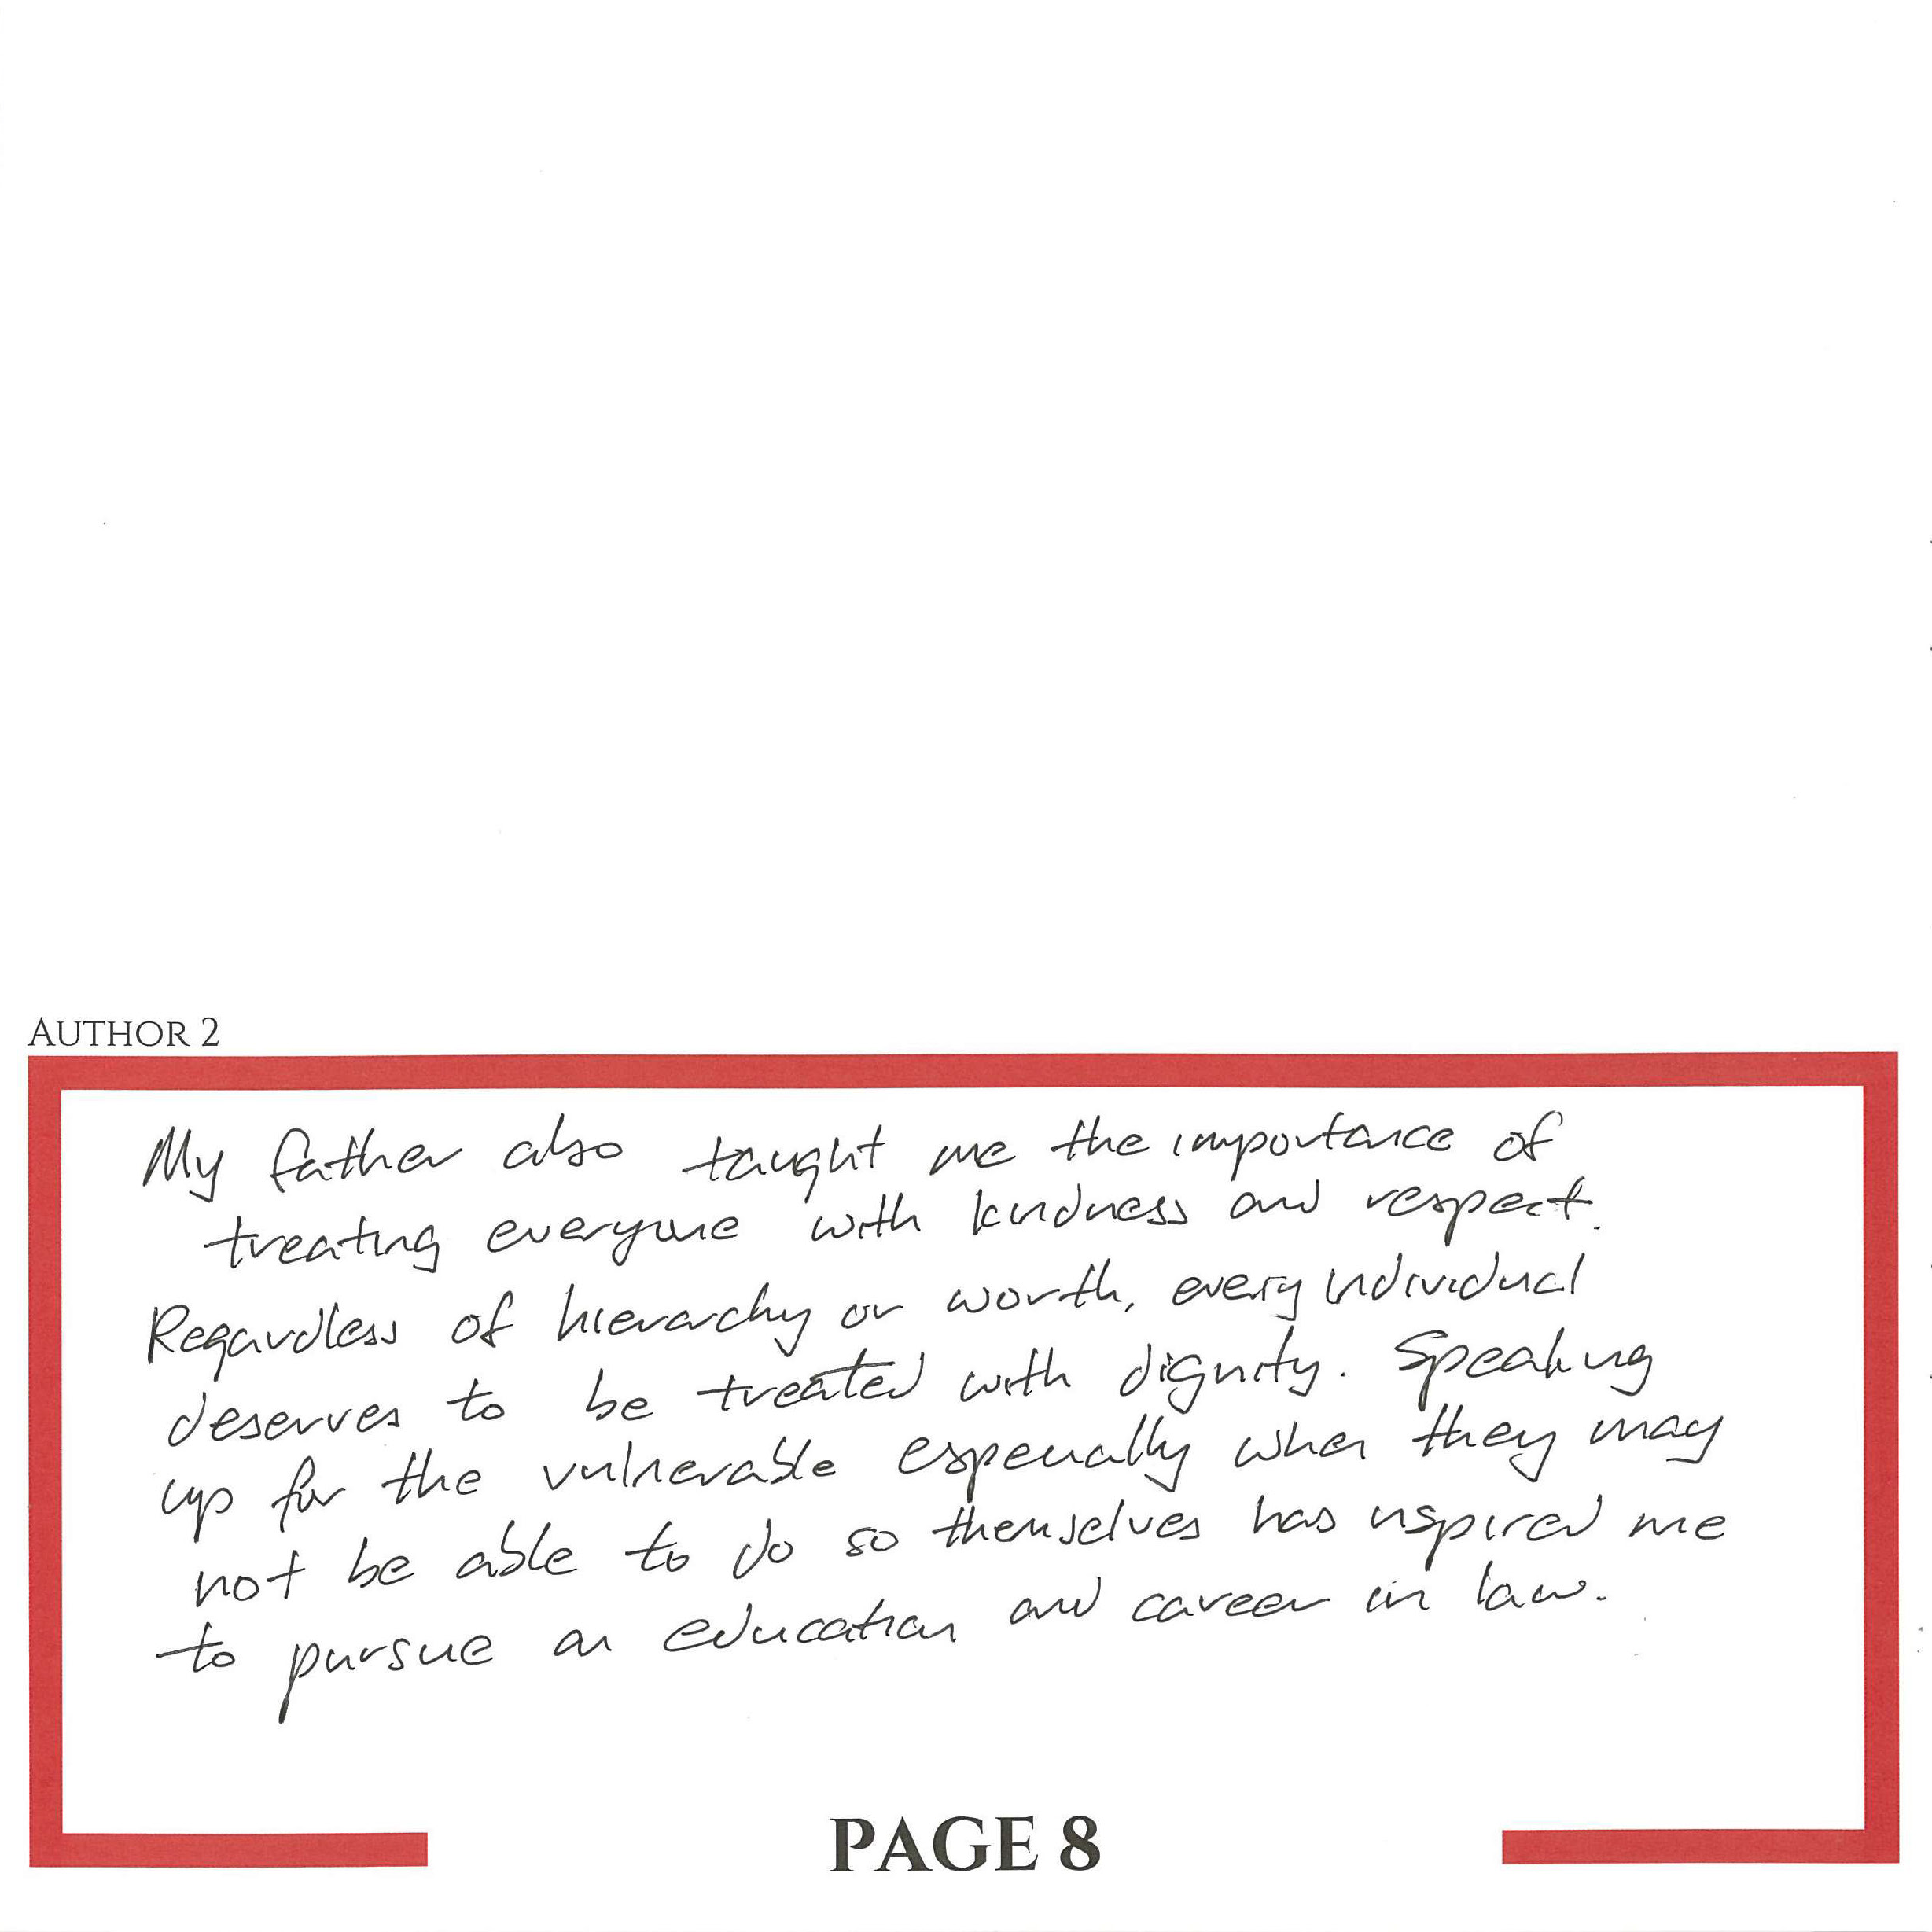 AUTHOR 2
My father also taught me the importance of
treating everyone with kindness and respect.
Regardless of hierarchy or worth, every individual
deserves to be treated with dignity. Speaking
up for the vulnerable especially when they may
not be able to do so themselves has inspired me
to pursue an education and career in law.
PAGE 8